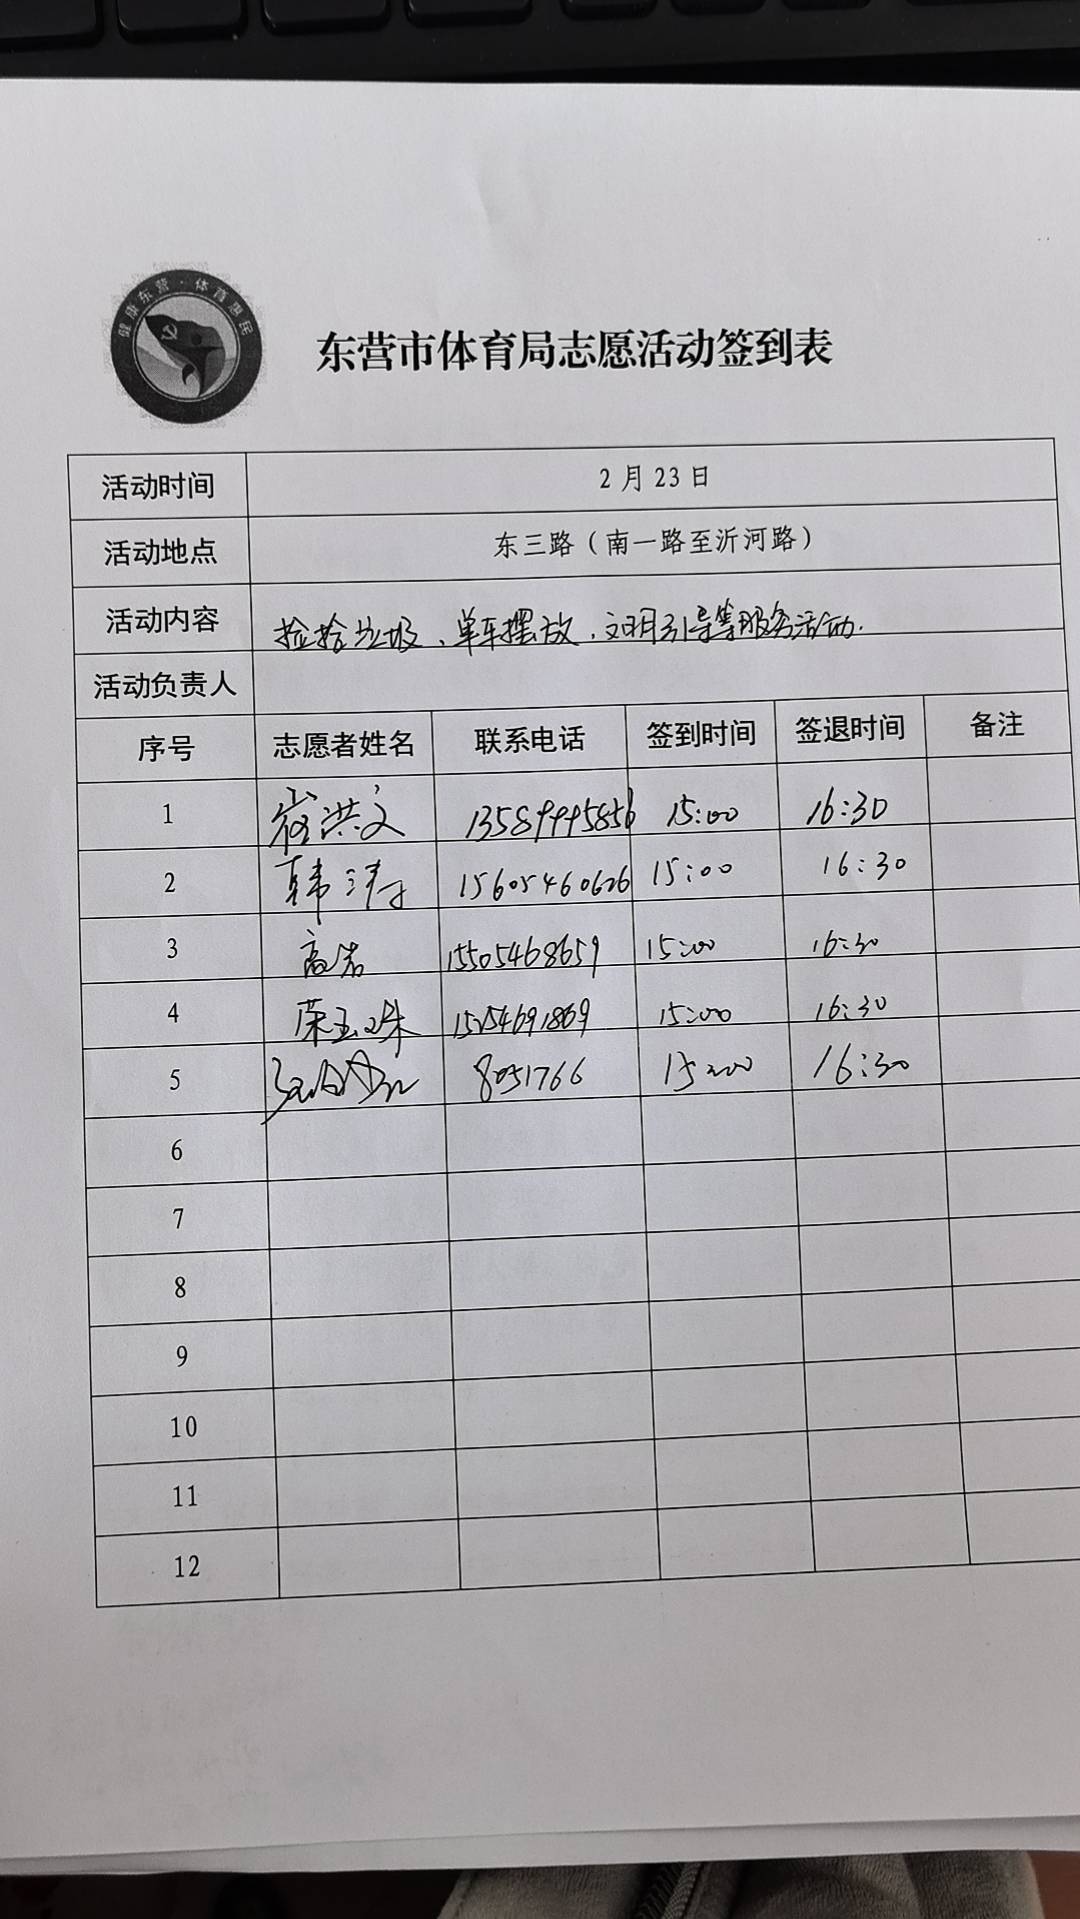 健康东营·体育惠民
东营市体育局志愿活动签到表
活动时间 2月23日
活动地点 东三路（南一路至沂河路）
活动内容 捡拾垃圾、单车摆放、文明引导等服务活动.
活动负责人
序号 志愿者姓名 联系电话 签到时间 签退时间 备注
1 崔洪文 15:00 16:30
2 韩 15605460626 15:00 16:30
3 高岩 15505468659 15:00 16:30
4 荣玉珠 15:00 16:30
5 8051766 15:00 16:30
6
7
8
9
10
11
12